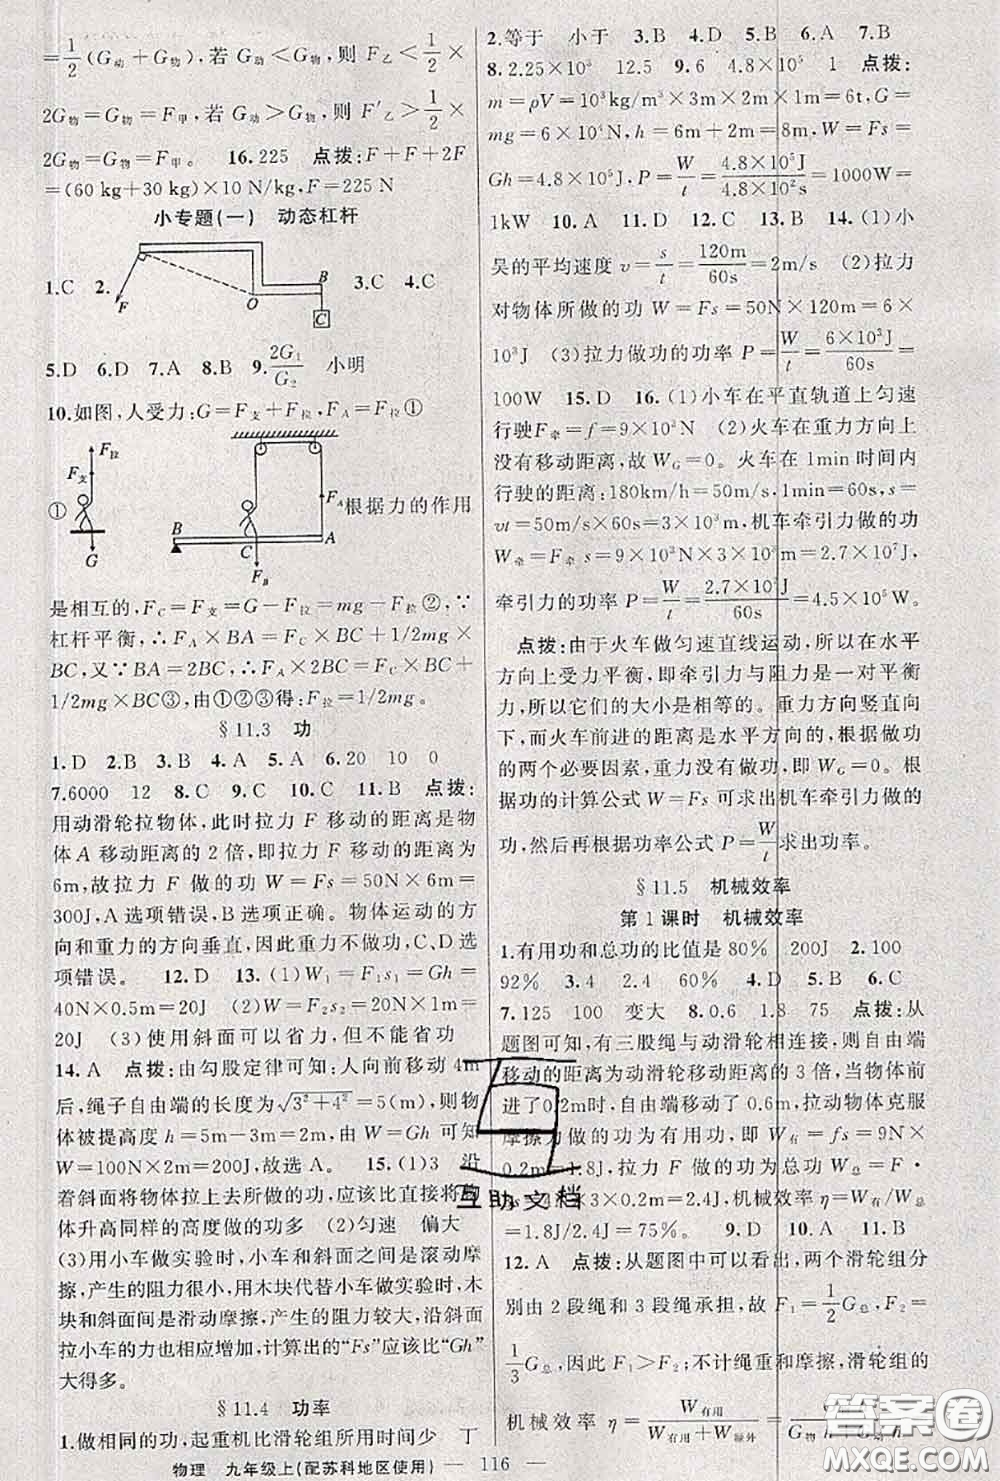 =1/2(G动+G物),若 G动<G物,则 F乙<1/2×
2G物=G物=F甲,若 G动>G物,则 F′乙>1/2×
2G物=G物=F甲。 16.225 点拨:F+F+2F
=(60 kg+30 kg)×10 N/kg,F=225 N
小专题(一) 动态杠杆
1.C 2. F O B C 3.C 4.C
5.D 6.D 7.A 8.B 9.2G₁/G₂ 小明
10.如图,人受力:G=F支+F拉,FA=F拉①
① F拉 F支 G B C FB FA A 根据力的作用
是相互的,FC=F支=G-F拉=mg-F拉②,∵
杠杆平衡,∴FA×BA=FC×BC+1/2mg×
BC,又∵BA=2BC,∴FA×2BC=FC×BC+
1/2mg×BC③,由①②③得:F拉=1/2mg。
§11.3 功
1.D 2.B 3.B 4.A 5.A 6.20 10 0
7.6000 12 8.C 9.C 10.C 11.B 点拨:
用动滑轮拉物体,此时拉力 F 移动的距离是物
体A 移动距离的 2 倍,即拉力 F 移动的距离为
6m,故拉力 F 做的功 W=Fs=50N×6m=
300J,A选项错误,B选项正确。物体运动的方
向和重力的方向垂直,因此重力不做功,C、D选
项错误。 12.D 13.(1)W₁=F₁s₁=Gh=
40N×0.5m=20J (2)W₂=F₂s₂=20N×1m=
20J (3)使用斜面可以省力,但不能省功
14.A 点拨:由勾股定律可知:人向前移动 4m
后,绳子自由端的长度为√3²+4²=5(m),则物
体被提高度 h=5m-3m=2m,由 W=Gh 可知
W=100N×2m=200J,故选 A。 15.(1)3 沿
着斜面将物体拉上去所做的功,应该比直接将物
体升高同样的高度做的功多 (2)匀速 偏大
(3)用小车做实验时,小车和斜面之间是滚动摩
擦,产生的阻力很小,用木块代替小车做实验,木
块和斜面间是滑动摩擦,产生的阻力较大,沿斜面
拉小车的力也相应增加,计算出的“Fs”应该比“Gh”
大得多。
§11.4 功率
1.做相同的功,起重机比滑轮组所用时间少 丁
2.等于 小于 3.B 4.D 5.B 6.A 7.B
8.2.25×10³ 12.5 9.6 4.8×10⁵ 1 点拨:
m=ρV=10³kg/m³×3m×2m×1m=6t,G=
mg=6×10⁴N,h=6m+2m=8m,W=Fs=
Gh=4.8×10⁵J,P=W/t=4.8×10⁵J/4.8×10²s=1000W=
1kW 10.A 11.D 12.C 13.B 14.(1)小
吴的平均速度 v=s/t=120m/60s=2m/s (2)拉力
对物体所做的功 W=Fs=50N×120m=6×
10³J (3)拉力做功的功率 P=W/t=6×10³J/60s=
100W 15.D 16.(1)小车在平直轨道上匀速
行驶F牵=f=9×10³N (2)火车在重力方向上
没有移动距离,故WG=0。火车在1min时间内
行驶的距离:180km/h=50m/s,1min=60s,s=
vt=50m/s×60s=3×10³m,机车牵引力做的功
W牵=F牵s=9×10³N×3×10³m=2.7×10⁷J,
牵引力的功率 P=W/t=2.7×10⁷J/60s=4.5×10⁵W。
点拨:由于火车做匀速直线运动,所以在水平
方向上受力平衡,即牵引力与阻力是一对平衡
力,所以它们的大小是相等的。重力方向竖直向
下,而火车前进的距离是水平方向的,根据做功
的两个必要因素,重力没有做功,即WG=0。根
据功的计算公式 W=Fs 可求出机车牵引力做的
功,然后再根据功率公式 P=W/t求出功率。
§11.5 机械效率
第1课时 机械效率
1.有用功和总功的比值是80% 200J 2.100
92% 3.4 2.4 60% 4.D 5.B 6.C
7.125 100 变大 8.0.6 1.8 75 点拨:从
题图可知,有三股绳与动滑轮相连接,自由端
移动的距离为动滑轮移动距离的 3 倍,当物体前
进了0.2m时,自由端移动了0.6m,拉动物体克服
摩擦力做的功为有用功,即 W有=fs=9N×
0.2m=1.8J,拉力 F 做的功为总功 W总=
Fs=4N×3×0.2m=2.4J,机械效率 η=W有/W总
=1.8J/2.4J=75%。 9.D 10.A 11.B
12.A 点拨:从题图中可以看出,两个滑轮组分
别由 2 段绳和 3 段绳承担,故 F₁=1/2G总,F₂=
1/3G总,因此 F₁>F₂;不计绳重和摩擦,滑轮组的
机械效率 η=W有用/W有用+W额外=
物理 九年级上(配苏科地区使用) — 116 —
互助文档
答案圈
MXQE.COM